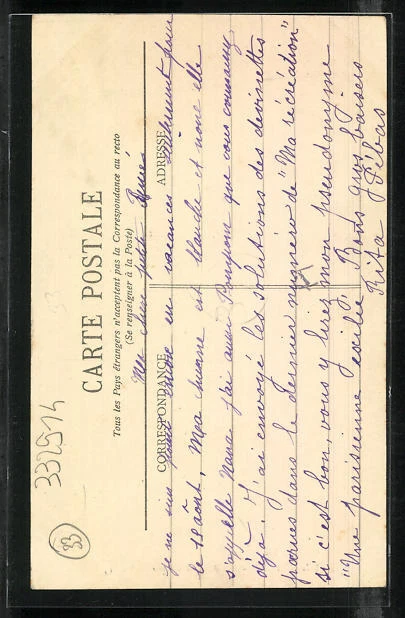 33
332514
CARTE POSTALE
Tous les Pays étrangers n'acceptent pas la Correspondance au recto
(Se renseigner à la Poste)
CORRESPONDANCE
ADRESSE
Ma chère petite Aimée
je ne suis pas encore en vacances seulement pour
le 12 août. Ma chienne est blanche et noire elle
s'appelle Nana j'ai aussi que vous connaissez
déjà. J'ai envoyé les solutions des devinettes
parues dans le dernier numéro de "Ma récréation"
si c'est bon, vous y lirez mon pseudonyme
"Une parisienne" Bons gros baisers
Rita